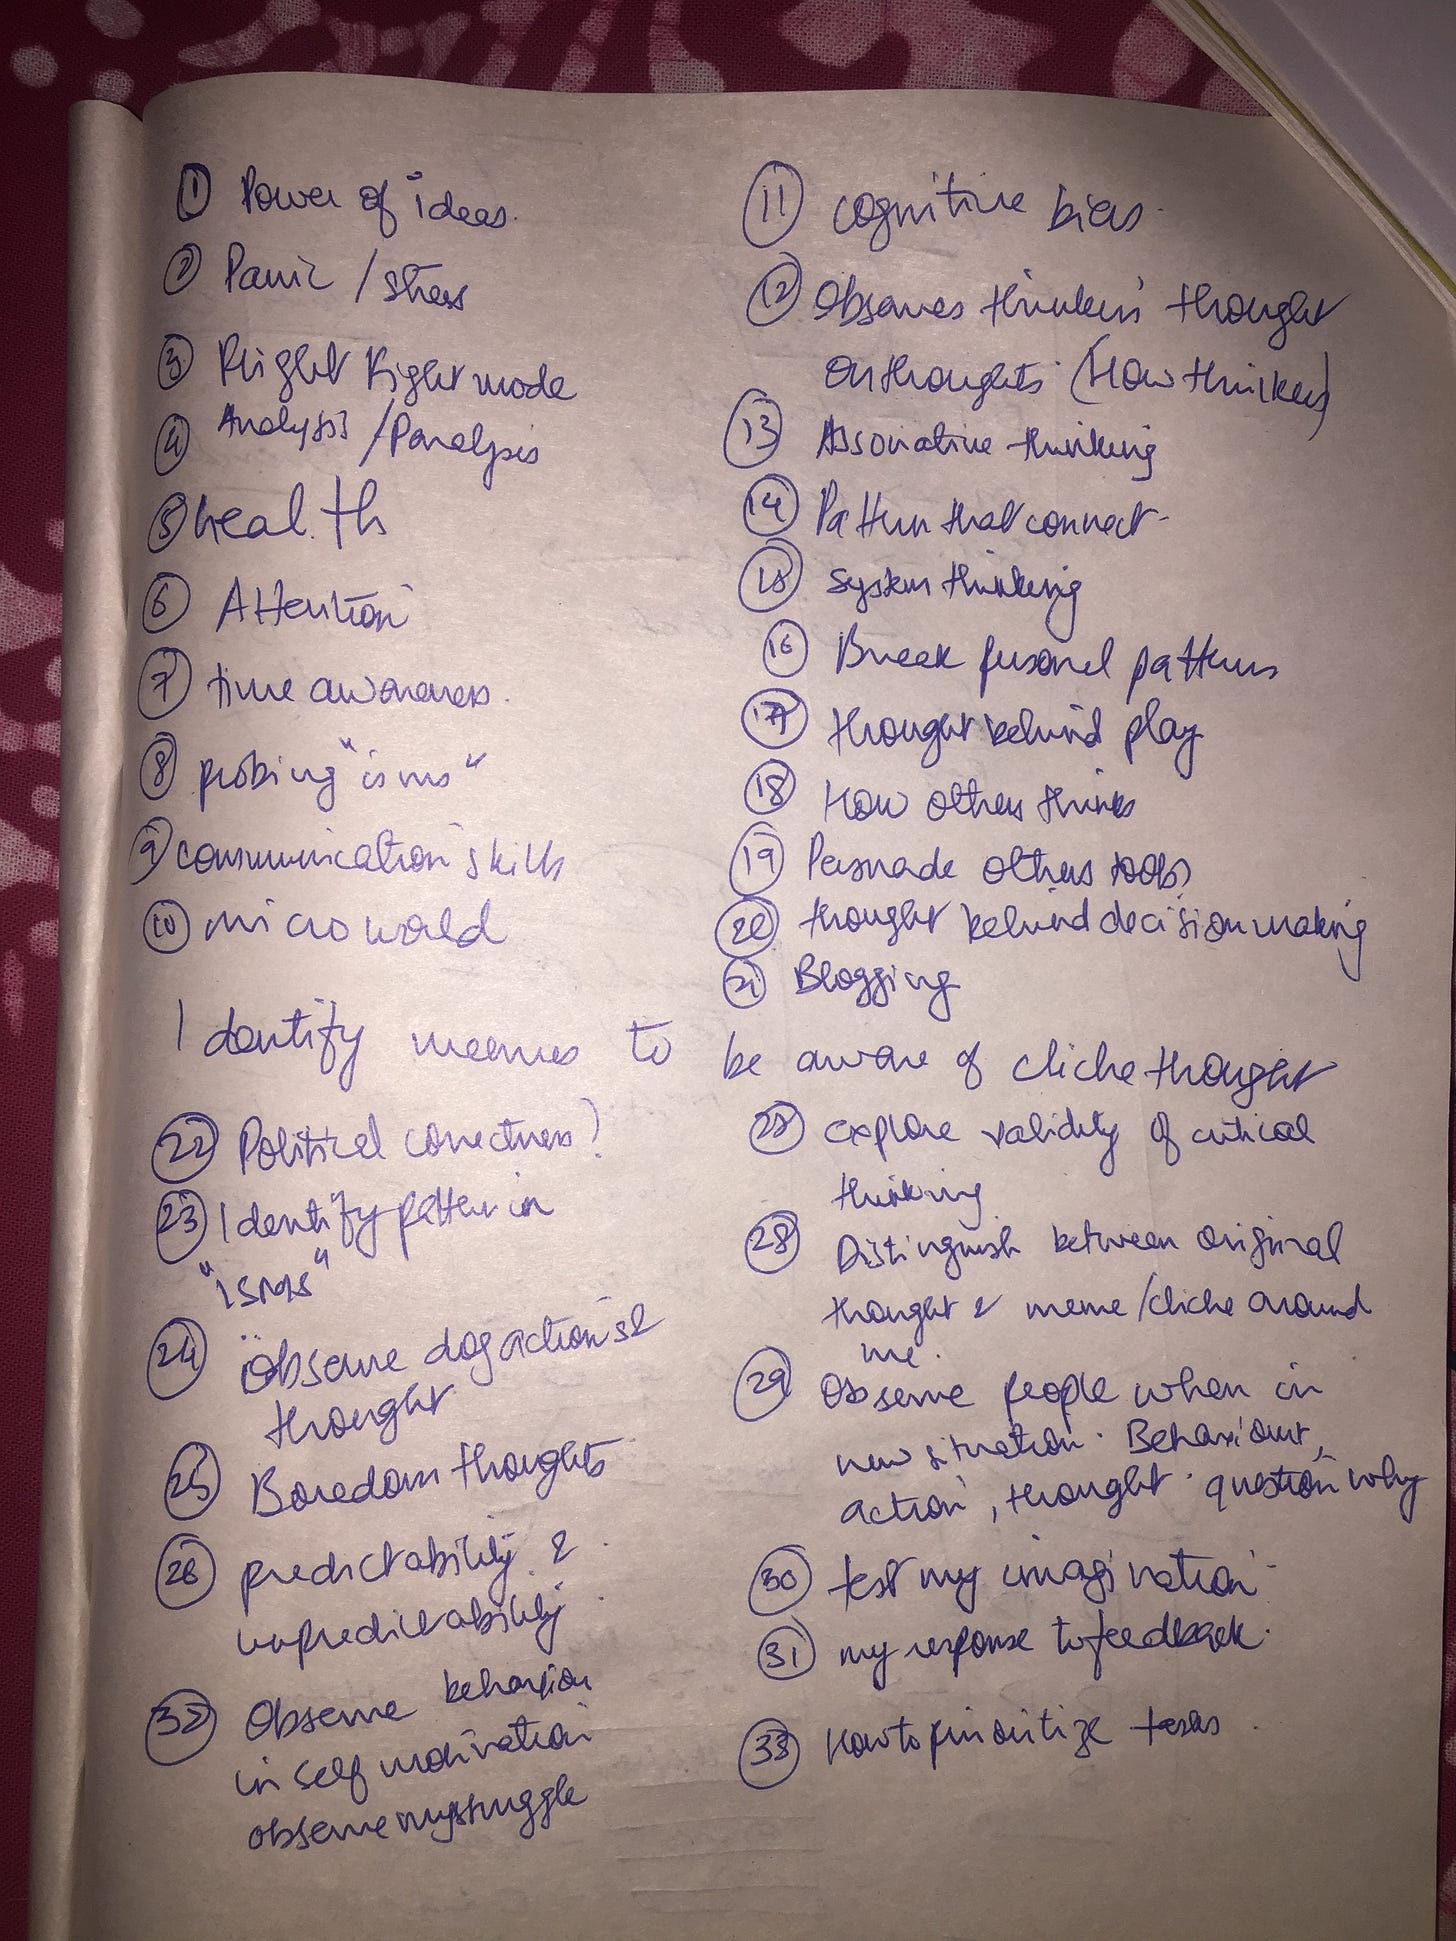 ① Power of ideas.
② Panic / stress
③ Flight Fight mode
④ Analysis / Paralysis
⑤ heal.th
⑥ Attention
⑦ time awareness.
⑧ probing "isms"
⑨ communication skills
⑩ micro world
⑪ cognitive bias.
⑫ Observes thinkers thought
on thoughts. (How thinkers)
⑬ Associative thinking
⑭ Pattern that connect-
⑮ System thinking
⑯ Break personal patterns
⑰ thought behind play
⑱ How others thinks
⑲ Persuade others tools
⑳ thought behind decision making
㉑ Blogging
Identify memes to be aware of cliche thought
㉒ Political correctness?
㉓ Identify patter in
"isms"
㉔ Observe dog action's &
thought
㉕ Boredom thoughts
㉖ predictability &
unpredictability
㉜ Observe behavior
in self motivation
observe my struggle
explore validity of critical
thinking
㉘ Distinguish between original
thought & meme/cliche around
me.
㉙ Observe people when in
new situation. Behaviour,
action, thought. question why
㉚ test my imagination-
㉛ my response to feedback.
㉝ How to prioritize tasks